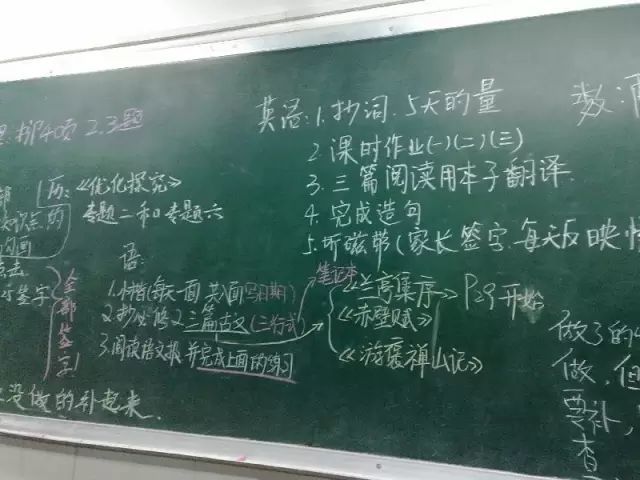 2.3题
历:《优化探究》
专题二和专题六
签字
全部签字!
没做的补起来.
语:
1.小楷(每天一面 共八面 写日期)
2.抄必修2三篇古文(三行式)
3.阅读语文报,并完成上面的练习
笔记本
《兰亭集序》P29开始
《赤壁赋》
《游褒禅山记》
英语:1.抄词.5天的量
2.课时作业(一)(二)(三)
3.三篇阅读用本子翻译.
4.完成造句
5.听磁带(家长签字.每天反映情
数:
做了的
做,但
要补,
查